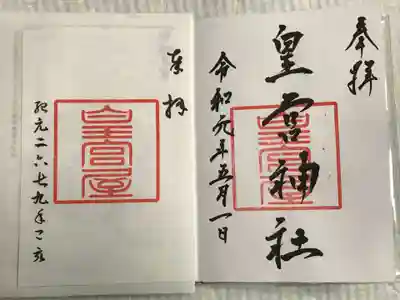 奉拝
皇宮神社
令和元年五月一日
皇宮屋
奉拝
皇宮屋
紀元二六七九年己亥